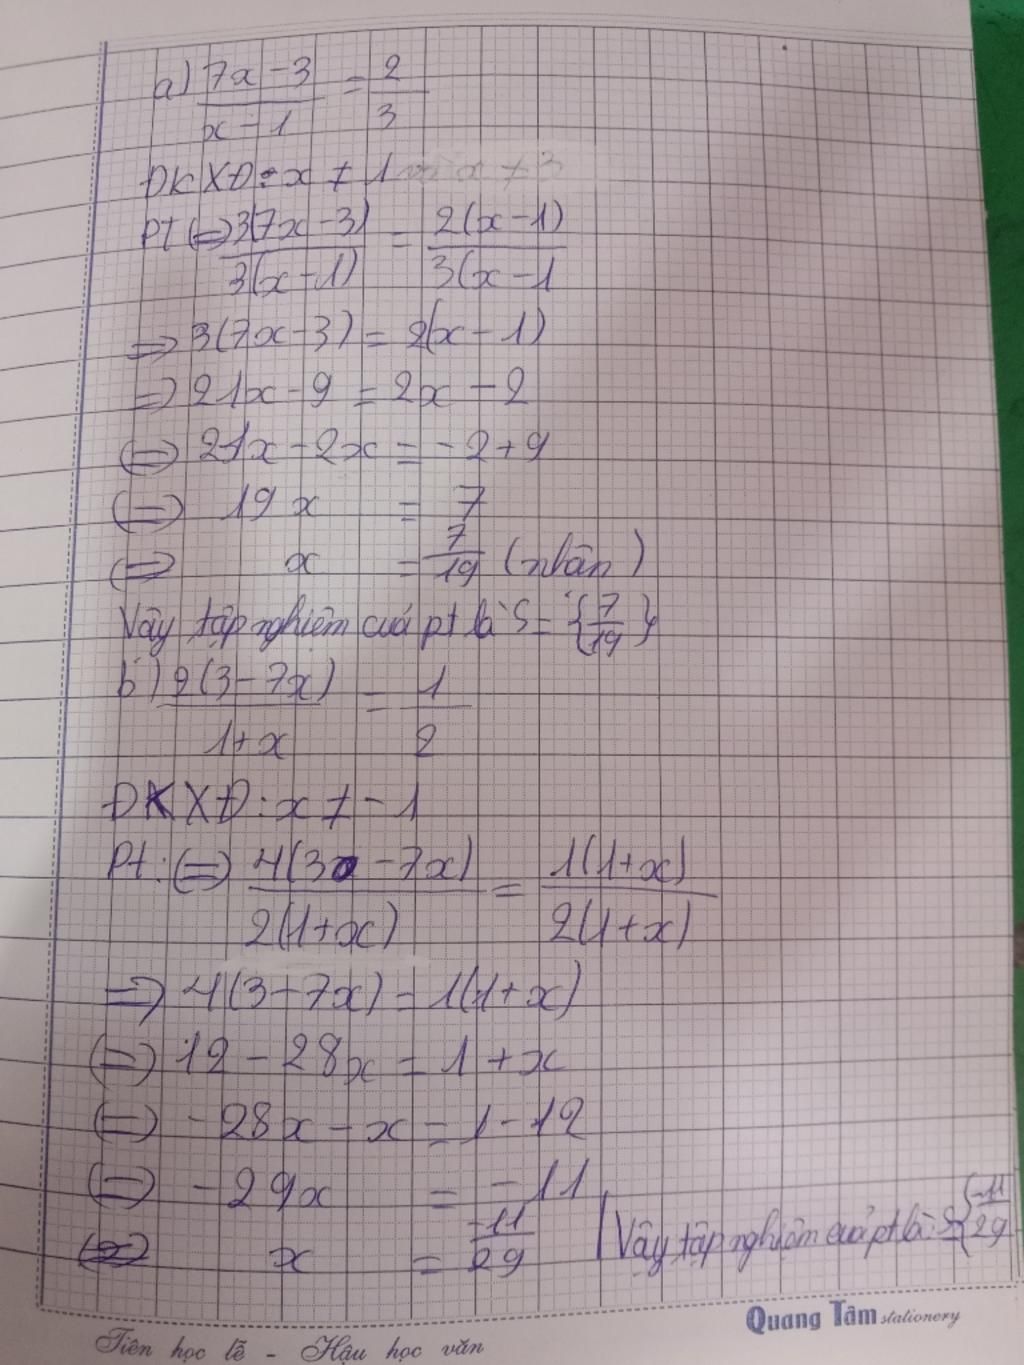 a) 7x-3/x-1 = 2/3
ĐKXĐ: x ≠ 1
Pt (=) 3(7x-3)/3(x-1) = 2(x-1)/3(x-1
=> 3(7x-3) = 2(x-1)
=> 21x-9 = 2x-2
(=) 21x-2x = -2+9
(=) 19x = 7
(=) x = 7/19 (nhận)
Vậy tập nghiệm của pt là S = {7/19}
b) 2(3-7x)/1+x = 1/2
ĐKXĐ: x ≠ -1
Pt: (=) 4(3-7x)/2(1+x) = 1(1+x)/2(1+x)
=> 4(3-7x) = 1(1+x)
(=) 12-28x = 1+x
(=) -28x-x = 1-12
(=) -29x = -11
(=) x = -11/29 | Vậy tập nghiệm của pt là: S={-11/29
Quang Tâm stationery
Tiên học lễ - Hậu học văn